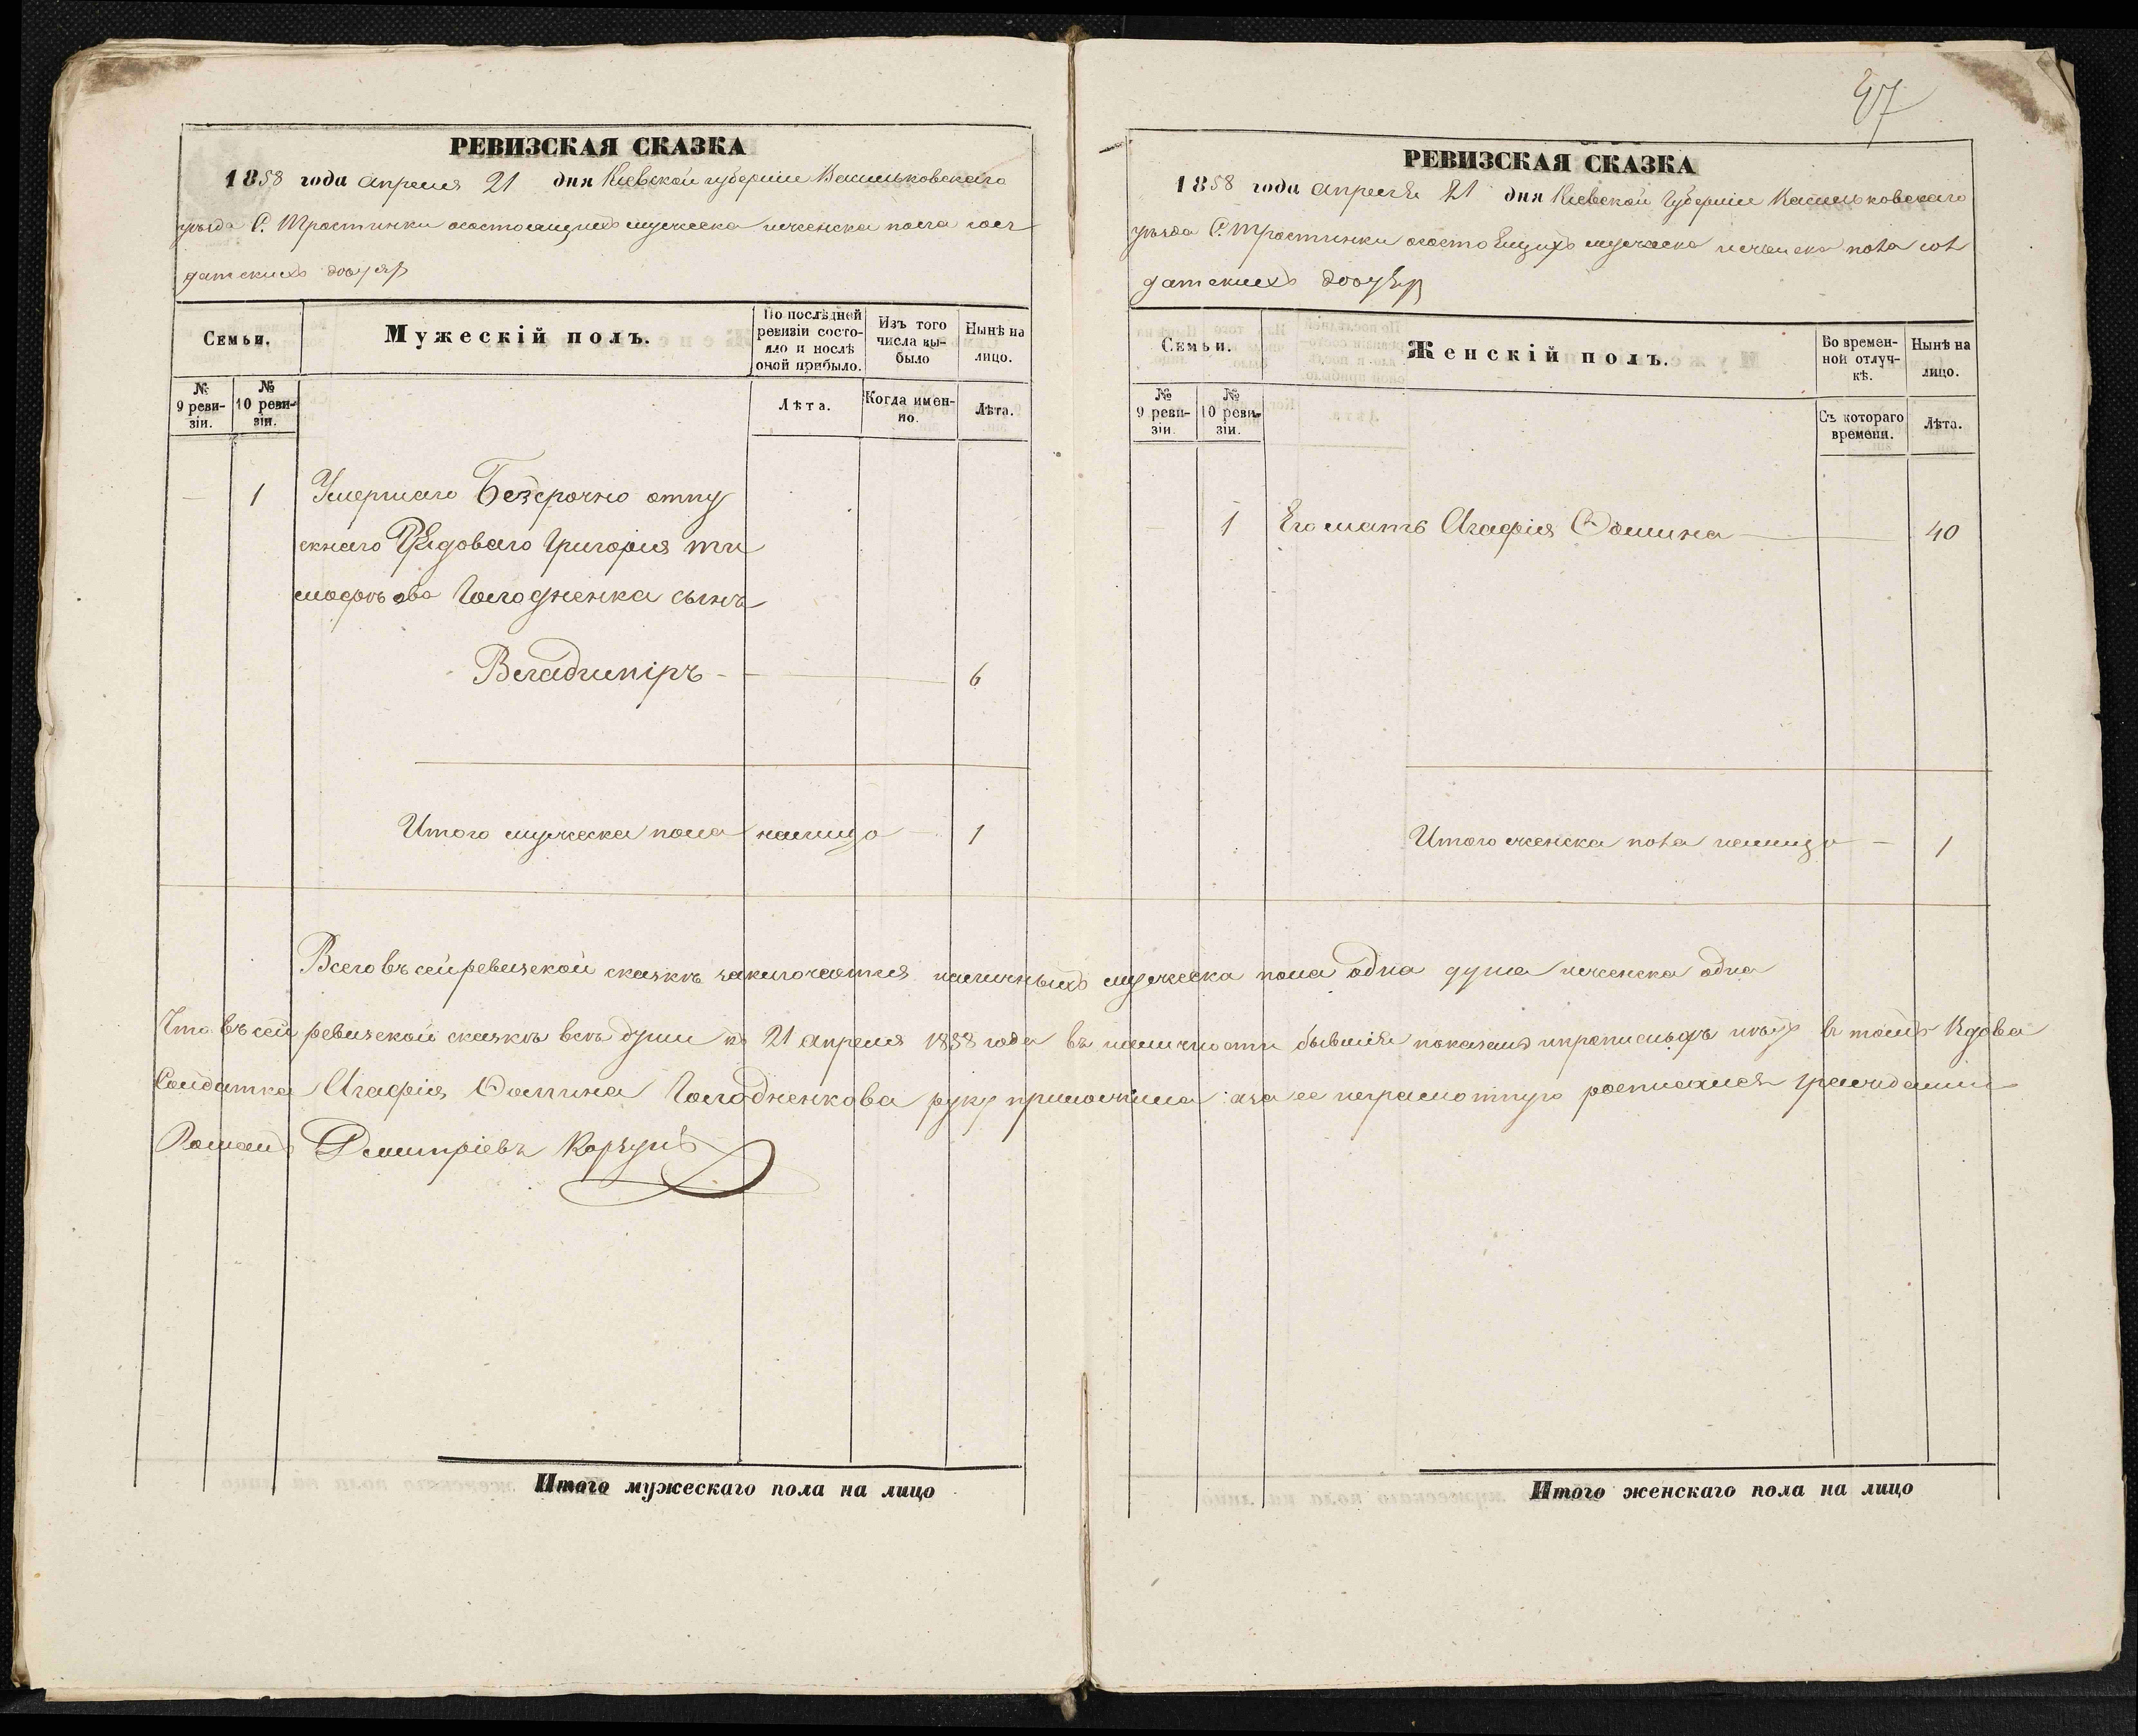 47
РЕВИЗСКАЯ СКАЗКА
1858 года Апреля 21 дня Киевской губернии Васильковскаго
уезда С. Тростинки осостоящихъ мужеска и женска пола сол
датскихъ
Семьи.
Мужескій полъ.
По послѣдней ревизіи состояло и послѣ оной прибыло.
Изъ того числа выбыло
Нынѣ на лицо.
№ 9 ревизіи.
№ 10 ревизіи.
Лѣта.
Когда именно.
Лѣта.
— 1 Умершаго Безсрочно отпу
скнаго Рядоваго Григорія Ти
мофѣева Голодненка сынъ
Владиміръ - 6
Итого мужеска пола налицо — 1
РЕВИЗСКАЯ СКАЗКА
1858 года Апреля 21 дня Киевской Губернии Васильковскаго
уезда С. Тростинки осостоящихъ мужеска и женска пола сол
датскихъ
Семьи.
Женскій полъ.
Во временной отлучкѣ.
Нынѣ на лицо.
№ 9 ревизіи.
№ 10 ревизіи.
Съ котораго времени.
Лѣта.
— 1 Его мать Агафія Фомина — 40
Итого женска пола налицо — 1
Всего въ сей ревизской сказкѣ заключается наличныхъ мужеска пола одна душа и женска одна
Что въ сей ревизской сказкѣ всѣ души къ 21 апреля 1858 года въ наличности бывшія показаны в томъ Вдова
Солдатка Агафія Фомина Голодненкова руку приложила а за ее неграмотную росписался
Романъ Дмитріевъ Корзунъ
Итого мужескаго пола на лицо
Итого женскаго пола на лицо